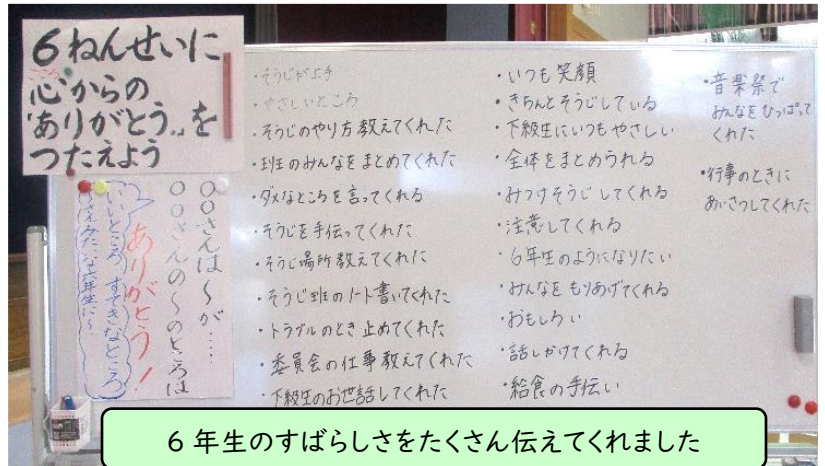 6ねんせいに
こころ
心からの
「ありがとう」を
つたえよう
○○さんは〜が……
○○さんの〜のところは
ありがとう!
いいところ、すてきなところ
・そうじが上手
・やさしいところ
・そうじのやり方教えてくれた
・班のみんなをまとめてくれた
・ダメなところを言ってくれる
・そうじを手伝ってくれた
・そうじ場所教えてくれた
・そうじ班のノート書いてくれた
・トラブルのとき止めてくれた
・委員会の仕事教えてくれた
・下級生のお世話してくれた
・いつも笑顔
・きちんとそうじしている
・下級生にいつもやさしい
・全体をまとめられる
・みつけそうじしてくれる
・注意してくれる
・6年生のようになりたい
・みんなをもりあげてくれる
・おもしろい
・話しかけてくれる
・給食の手伝い
・音楽祭で
みんなをひっぱって
くれた
・行事のときに
あいさつしてくれた
6年生のすばらしさをたくさん伝えてくれました